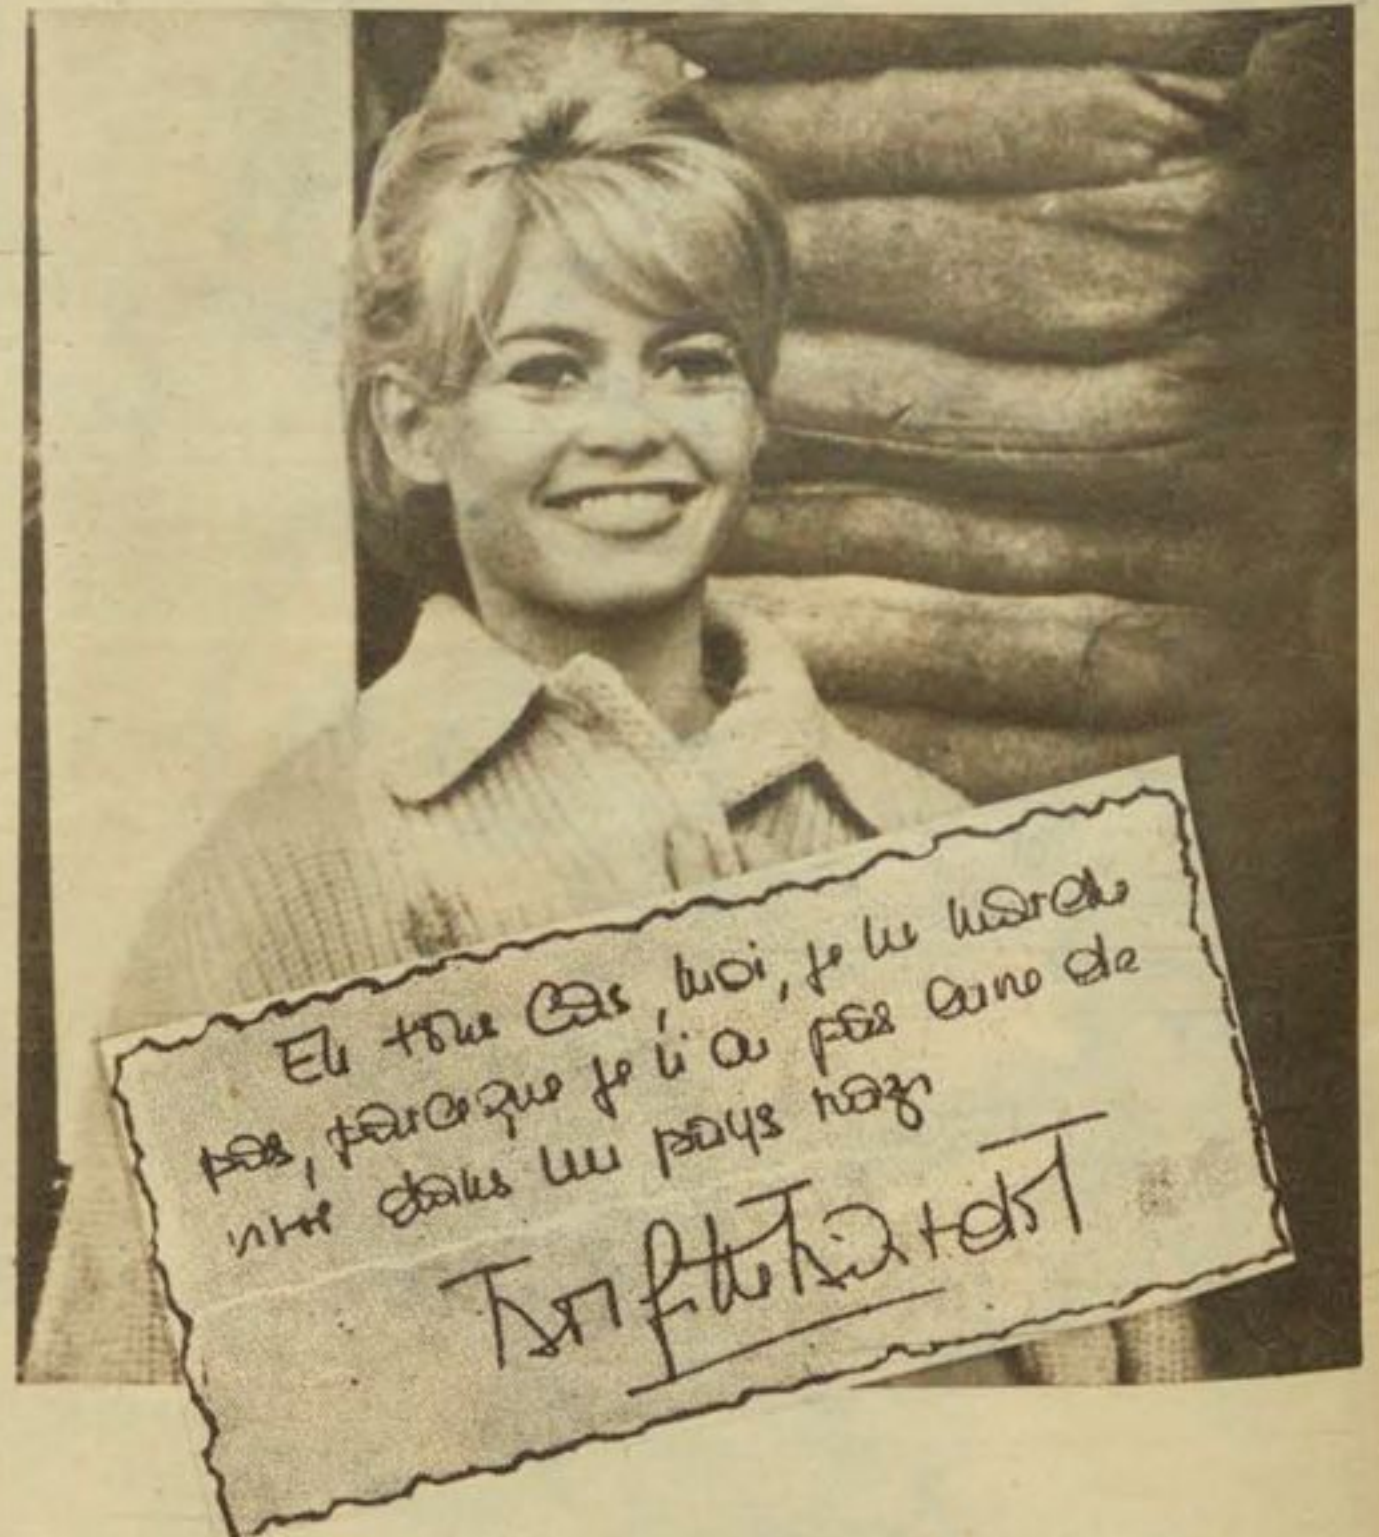 En tous cas, moi, je ne marche
pas, parce que je n'ai pas envie de
vivre dans un pays nazi
Brigitte Bardot